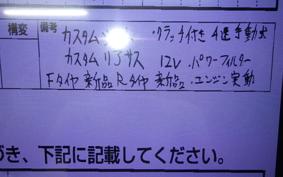 構変 備考 カスタム ・クラッチ付き 4速手動式
カスタム リアサス 12V ・パワーフィルター
Fタイヤ 新品 Rタイヤ 新品 ・エンジン実動
づき、下記に記載してください。